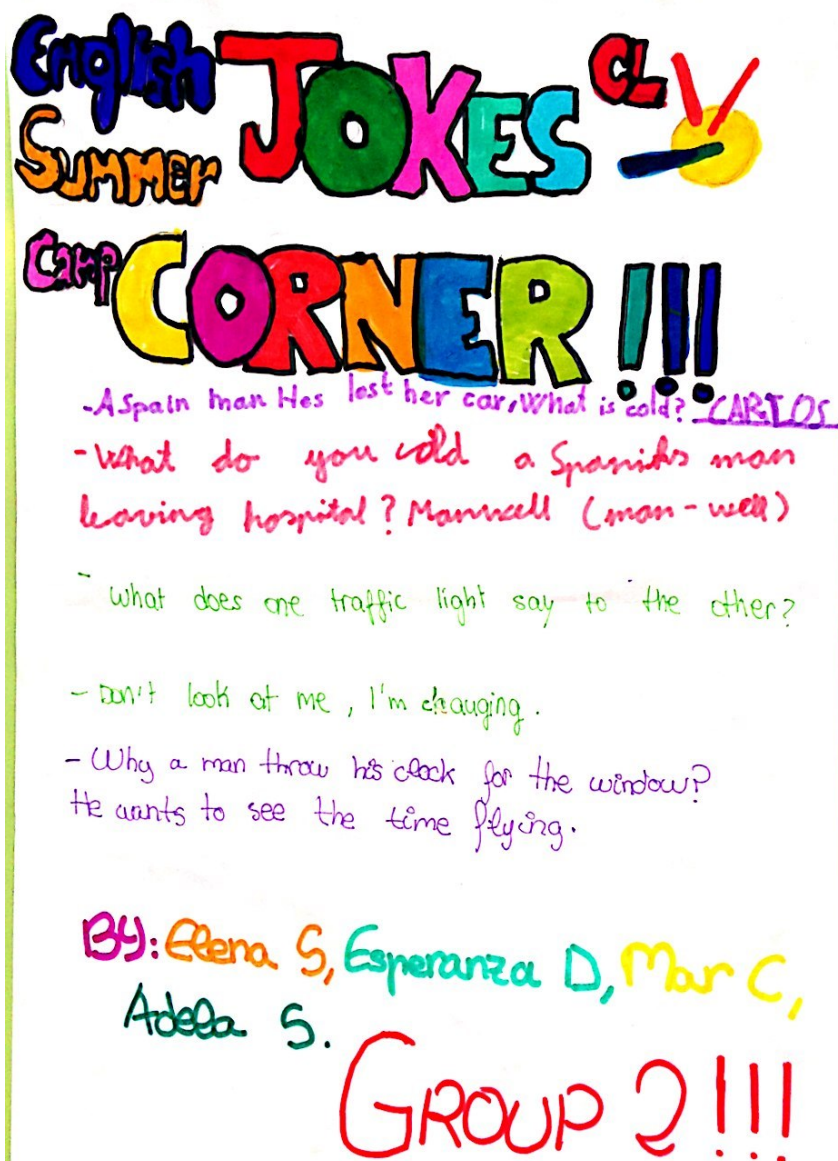 English
Summer
Camp
JOKES
CL
CORNER!!!
-A Spain man Hes lost her car, What is cold? CARLOS
- What do you cold a Spanish man
leaving hospital? Manwell (man-well)
- what does one traffic light say to the other?
- Don't look at me, I'm changing.
- Why a man throw his clock for the window?
He wants to see the time flying.
By: Elena S, Esperanza D, Mar C,
Adela S.
GROUP 2!!!